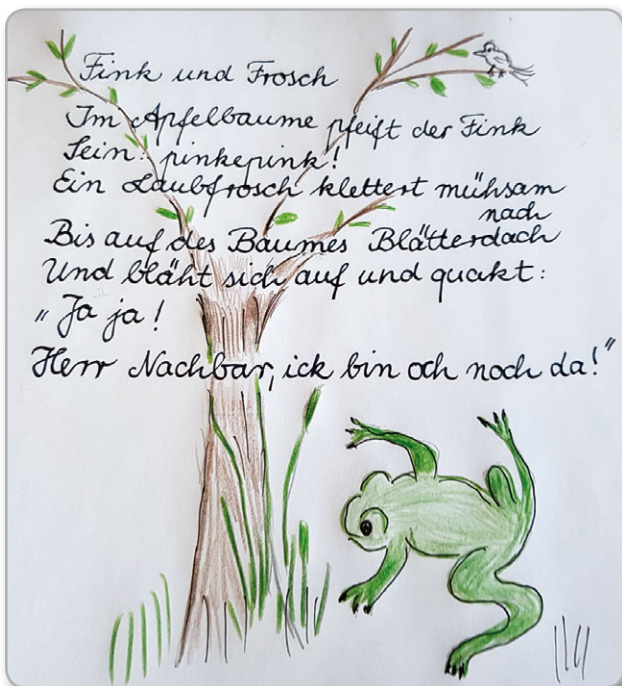 Fink und Frosch
Im Apfelbaume pfeift der Fink
Sein: pinkepink!
Ein Laubfrosch klettert mühsam
nach
Bis auf des Baumes Blätterdach
Und bläht sich auf und quakt:
„Ja ja!
Herr Nachbar, ick bin och noch da!"